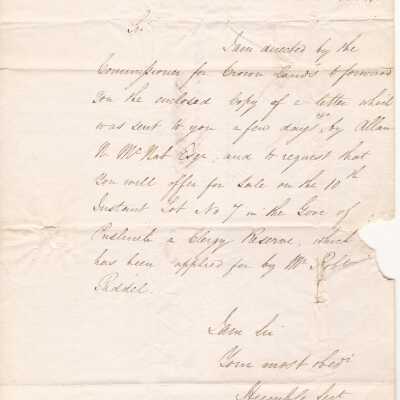 Sir
I am directed by the
Commissioner for Crown Lands to forward
you the enclosed copy of a letter which
was sent to you a few days ago by Allan
N McNab Esqr, and to request that
you will offer for Sale on the 10th
Instant Lot No 7 in the Gore of
Puslinch a Clergy Reserve, which
has been applied for by Mr Robt
Liddel.
I am Sir
Your most obedt
Humble Sert